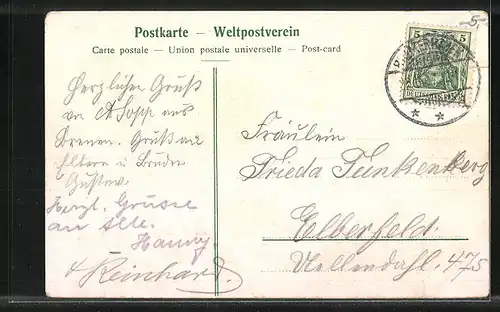 Postkarte – Weltpostverein
Carte postale – Union postale universelle – Post-card
5 5
DEUTSCHES
Herzlichen Gruß
an A Sopp aus
Bremen. Gruß an
Eltern u Bruder
Gustav
Herzl. Grüsse
an Alle.
& Reinhard.
Fräulein
Frieda Funkenberg
Elberfeld.
Uellendahl. 475
-5,